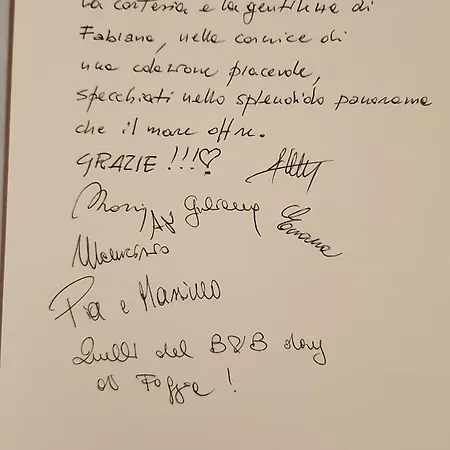 la cortesia e la gentilezza di
Fabiana, nella cornice di
una colazione piacevole,
specchiati nello splendido panorama
che il mare offre.
GRAZIE !!!♡
Pia e Massimo
Quelli del B&B day
di Foggia !